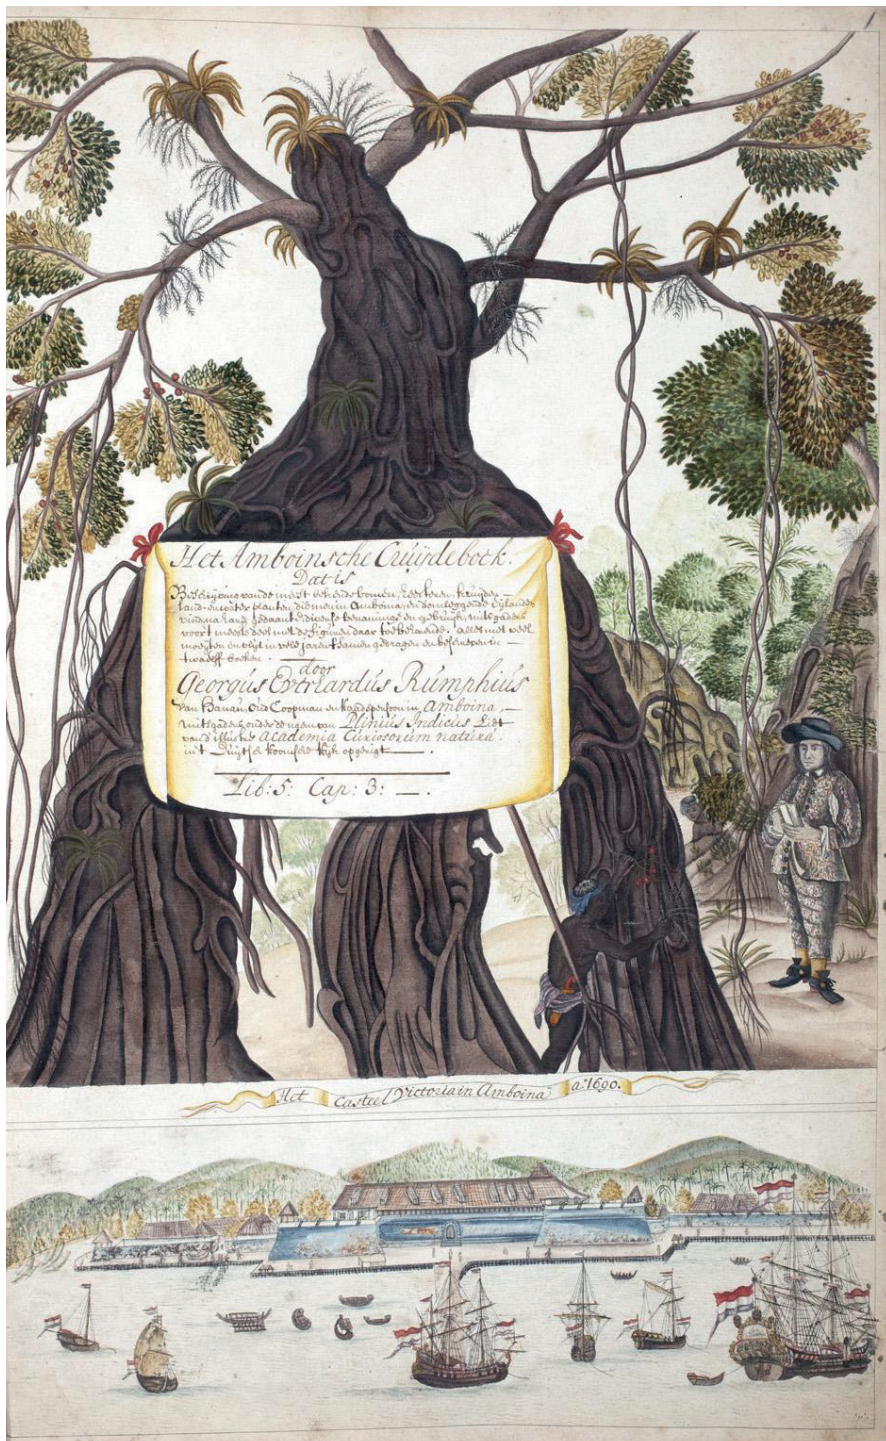 Het Amboinsche Cruÿdeboek.
Dat is
Beschrijving vande meest bekende boomen, heesteren, kruijden,
land- en water planten, die men in Amboina, en de omleggende Eÿlanden
vind, na haare gedaante, diverse benaminge en gebruijk, mitsgaders
voort meeste deel met de figuuren daar toe behorende. alles met veel
moeÿten en vlijt in veele jaren t'samen gedragen en beschreven in
twaelff boeken.
door
Georgiús Everhardús Rúmphiús
van Hanau, Oud Coopman en Raadspersoon in Amboina,
mitsgaders onder de nijem van Plinius Indicus Lidt
van d'illústre Academia Curiosorum naturæ
in't Duijtse Roomse Rijk opgerigt.
Lib: 5: Cap: 3:
Het Casteel Victoria in Amboina aº 1690.
1